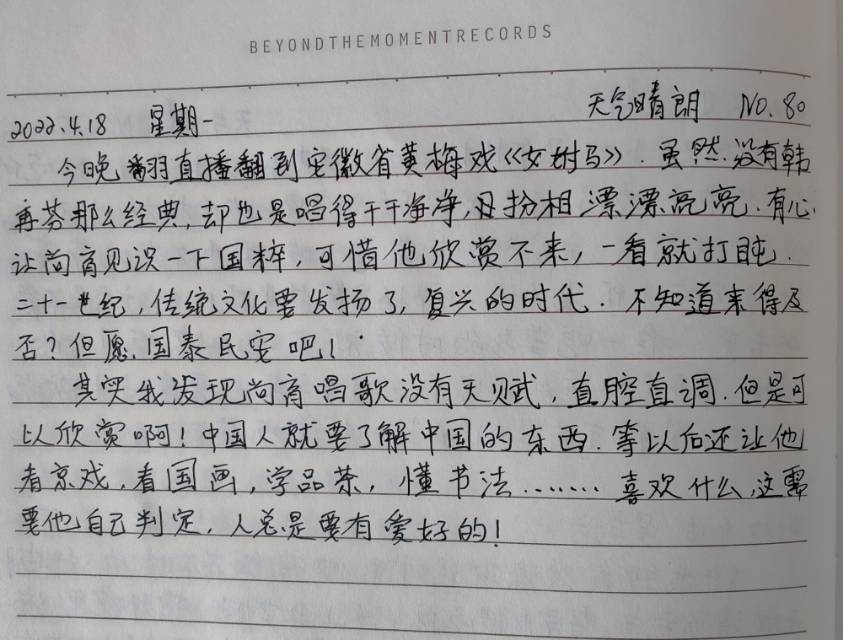 BEYONDTHEMOMENTRECORDS
2022.4.18 星期一 天气晴朗 NO. 80
今晚翻直播翻到安徽省黄梅戏《女驸马》.虽然没有韩
再芬那么经典,却也是唱得干干净净,且扮相漂漂亮亮.有心
让尚育见识一下国粹,可惜他欣赏不来,一看就打盹.
二十一世纪,传统文化要发扬了,复兴的时代.不知道来得及
否?但愿.国泰民安吧!
其实我发现尚育唱歌没有天赋,直腔直调.但是可
以欣赏啊!中国人就要了解中国的东西.等以后还让他
看京戏,看国画,学品茶,懂书法…… 喜欢什么,这需
要他自己判定,人总是要有爱好的!